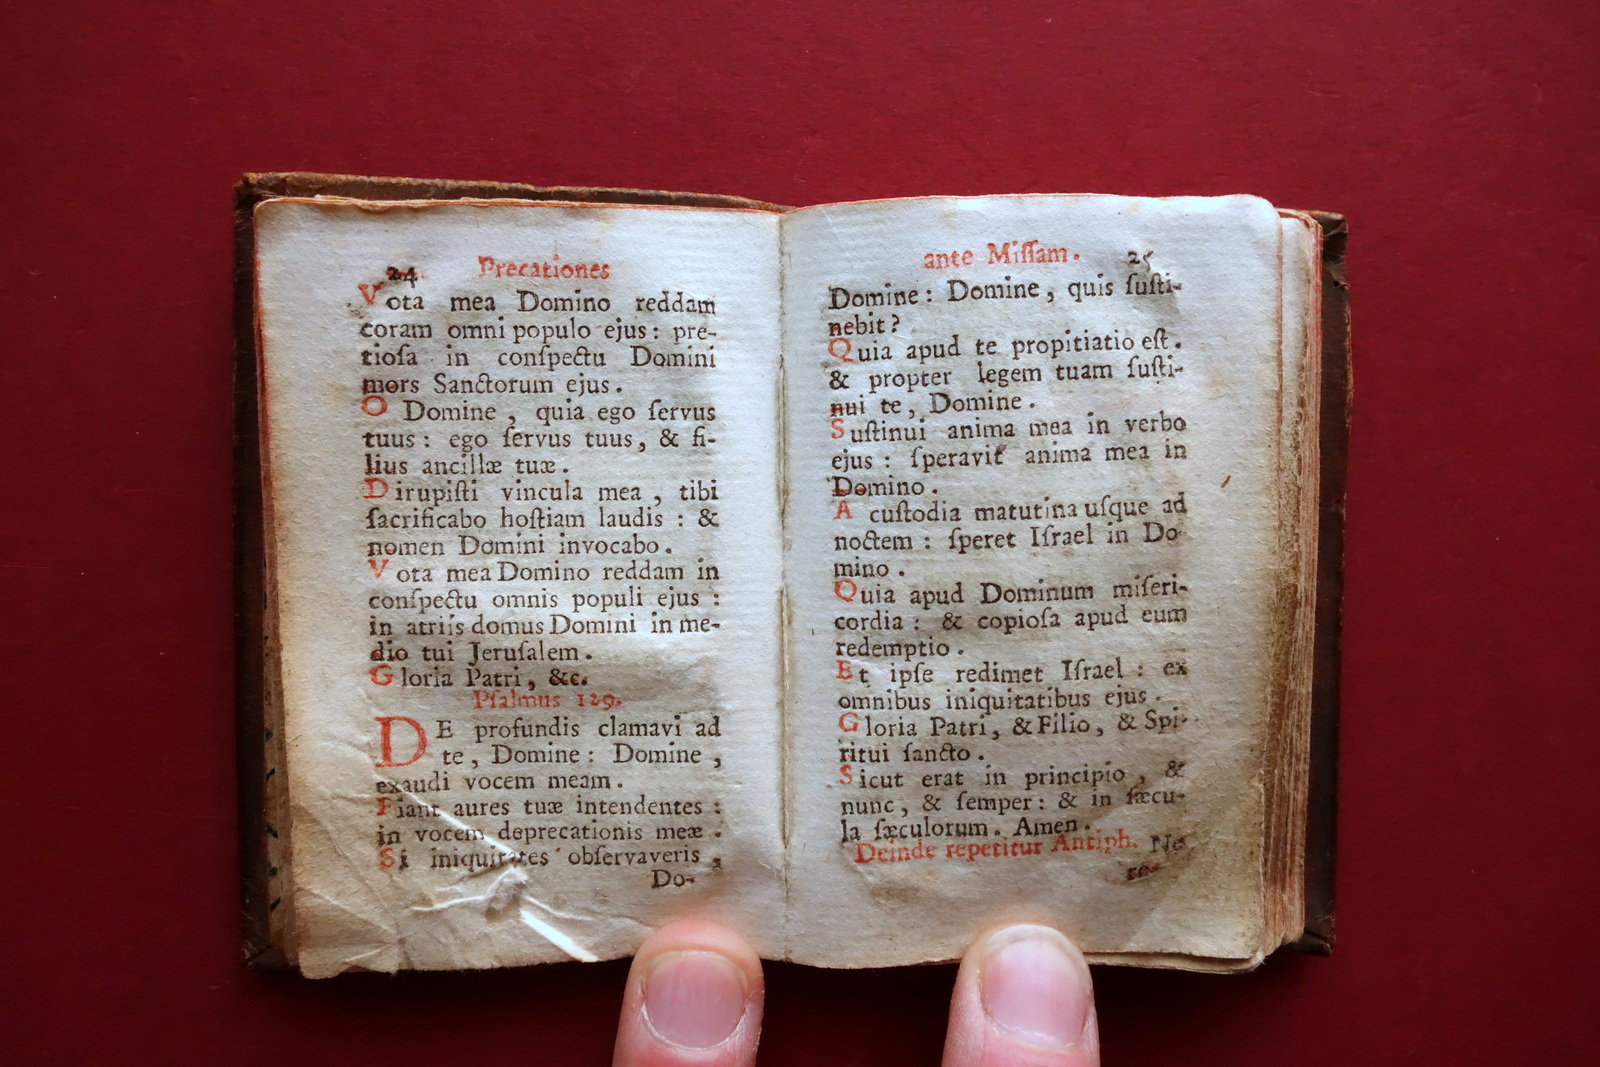 24 Precationes
Vota mea Domino reddam
coram omni populo ejus: pre-
tioſa in conſpectu Domini
mors Sanctorum ejus.
O Domine, quia ego ſervus
tuus: ego ſervus tuus, & fi-
lius ancillæ tuæ.
Dirupiſti vincula mea, tibi
ſacrificabo hoſtiam laudis: &
nomen Domini invocabo.
Vota mea Domino reddam in
conſpectu omnis populi ejus:
in atriis domus Domini in me-
dio tui Jeruſalem.
Gloria Patri, &c.
Pſalmus 129.
DE profundis clamavi ad
te, Domine: Domine,
exaudi vocem meam.
Fiant aures tuæ intendentes:
in vocem deprecationis meæ.
Si iniquitates obſervaveris,
Do-
ante Miſſam. 25
Domine: Domine, quis ſuſti-
nebit?
Quia apud te propitiatio eſt.
& propter legem tuam ſuſti-
nui te, Domine.
Suſtinui anima mea in verbo
ejus: ſperavit anima mea in
Domino.
A cuſtodia matutina uſque ad
noctem: ſperet Iſrael in Do-
mino.
Quia apud Dominum miſeri-
cordia: & copioſa apud eum
redemptio.
Et ipſe redimet Iſrael: ex
omnibus iniquitatibus ejus.
Gloria Patri, & Filio, & Spi-
ritui ſancto.
Sicut erat in principio, &
nunc, & ſemper: & in ſæcu-
la ſæculorum. Amen.
Deinde repetitur Antiph. Ne
re-